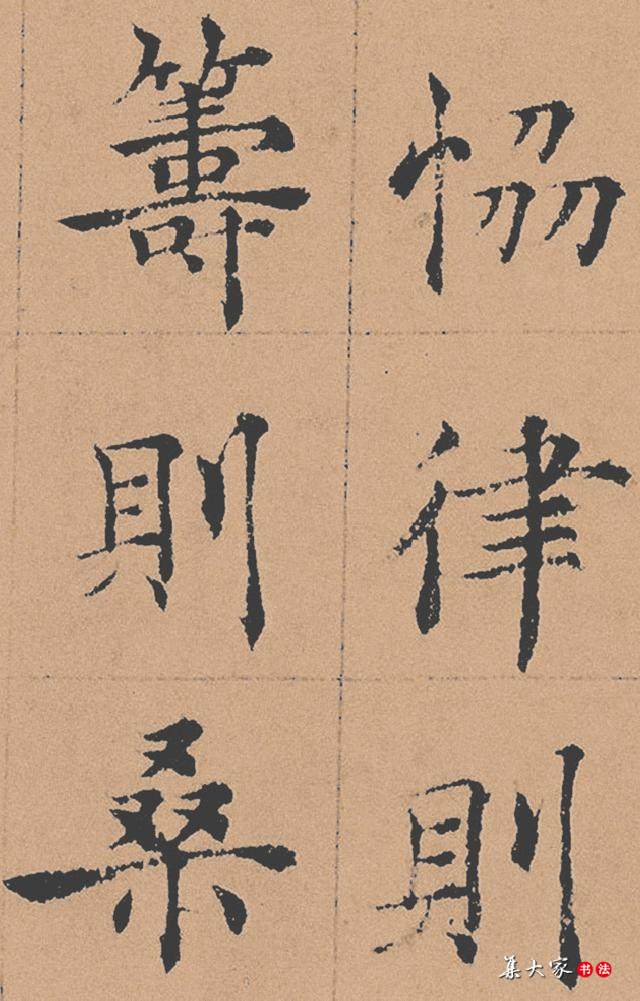 恊律則
籌則桑
集大家书法